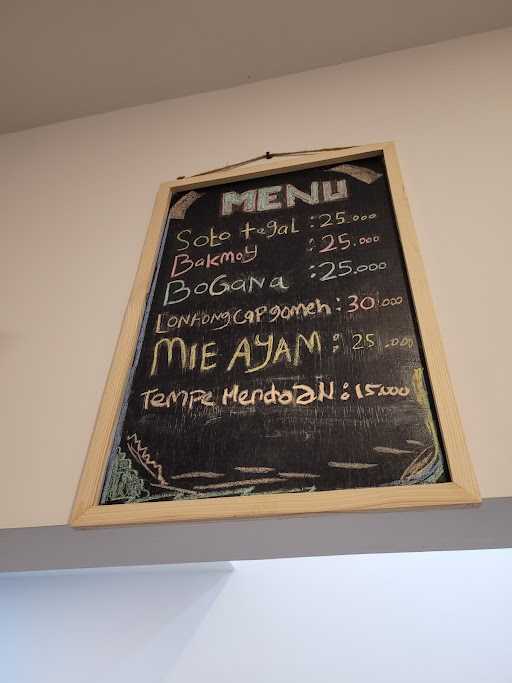 MENU
Soto tegal : 25.000
Bakmoy : 25.000
BoGana : 25.000
LONtong cap gomeh : 30.000
MIE AYAM : 25.000
Tempe MendoaN : 15.000